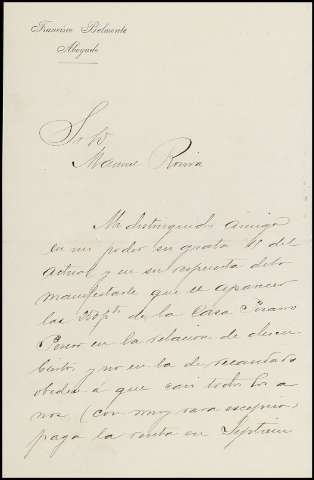 Francisco Belmonte
Abogado
Sr D
Manuel Rovira
Mi distinguido amigo
en mi poder su grata 11 del
actual y en su respuesta debo
manifestarle que el aparecer
las 250 pts de la Casa
en la relacion de descu
biertos y no en la de recaudado
obedece á que casi todos los a
nos (con muy rara escepcion)
paga la renta en Septiem